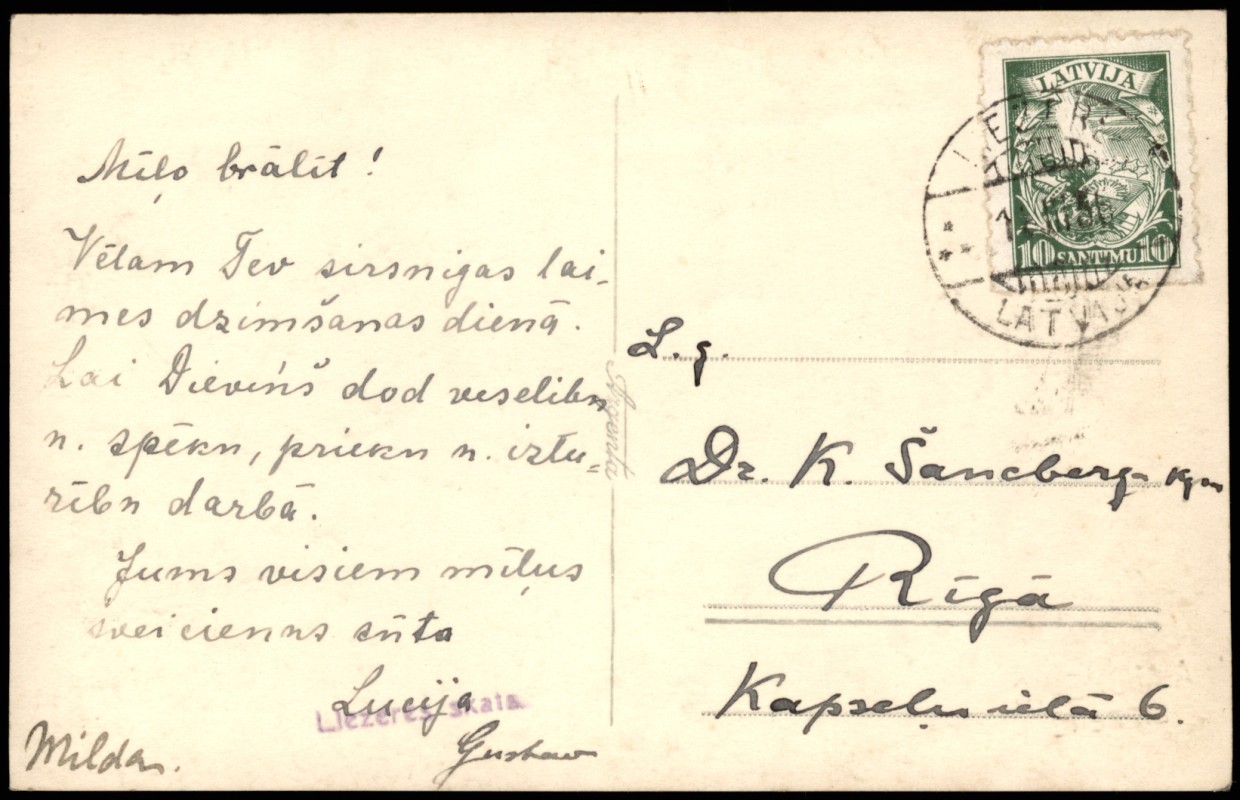 Mīļo brālīt!
Vēlam Tev sirsnīgas lai-
mes dzimšanas dienā.
Lai Dieviņš dod veselību
u. spēku, prieku u. iztu=
rību darbā.
Jums visiem mīļus
sveicienus sūta
Lucija
Gustav
Milda.
Liezeres skats
LATVIJA
10 SANTIMU 10
LATVIJA
L. g.
Dr. K. Šancberg kgm
Rīgā
Kapseļu ielā 6.